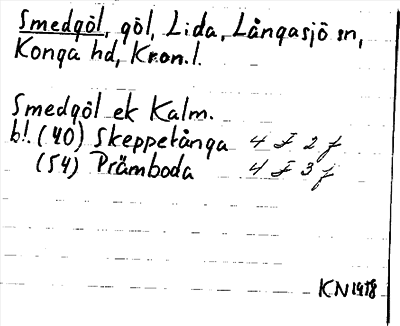 Smedgöl, göl, Lida, Långasjö sn,
Konga hd, Kron.l.
Smedgöl ek Kalm.
bl. (40) Skeppetånga 4 F 2 f
(54) Pråmboda 4 F 3 f
KN 1978